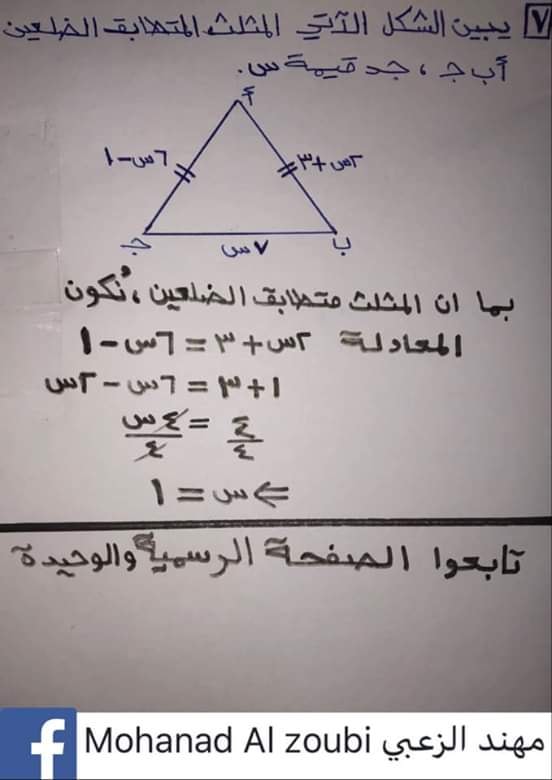 ٧ يبين الشكل الآتي المثلث المتطابق الضلعين
أ ب جـ ، جد قيمة س.
أ
٦س-١
٢س+٣
جـ
ب
٧س
بما ان المثلث متطابق الضلعين ، نُكون
المعادلة ٢س+٣=٦س-١
١+٣=٦س-٢س
٤/٤=٤س/٤
⇐ س=١
تابعوا الصفحة الرسمية والوحيدة
f Mohanad Al zoubi مهند الزعبي